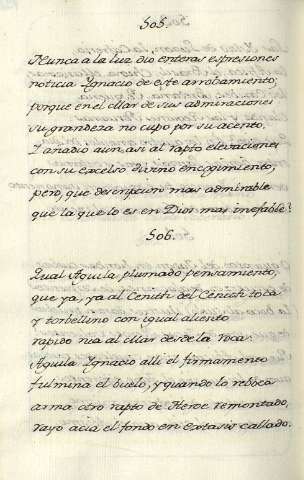 505.
Nunca a la luz dio enteras espresiones
noticia Ignacio de este arrobamiento;
porque en el Mar de sus admiraciones
su grandeza no cupo por su acento.
I añadio aun asi al rapto elevaciones
con su excelso divino encogimiento,
pero, que descripcion mas admirable
que la que lo es en Dios mas inefable?
506.
Qual Aguila plumado pensamiento,
que ya, ya al Cenith del Cenith toca
y torbellino con igual aliento
rapido via al Mar desde la roca.
Aguila Ignacio alli el firmamento
fulmina el buelo, y quando lo reboca
arma otro rapto de Heroe remontado,
rayo acia el fondo en extasis callado.